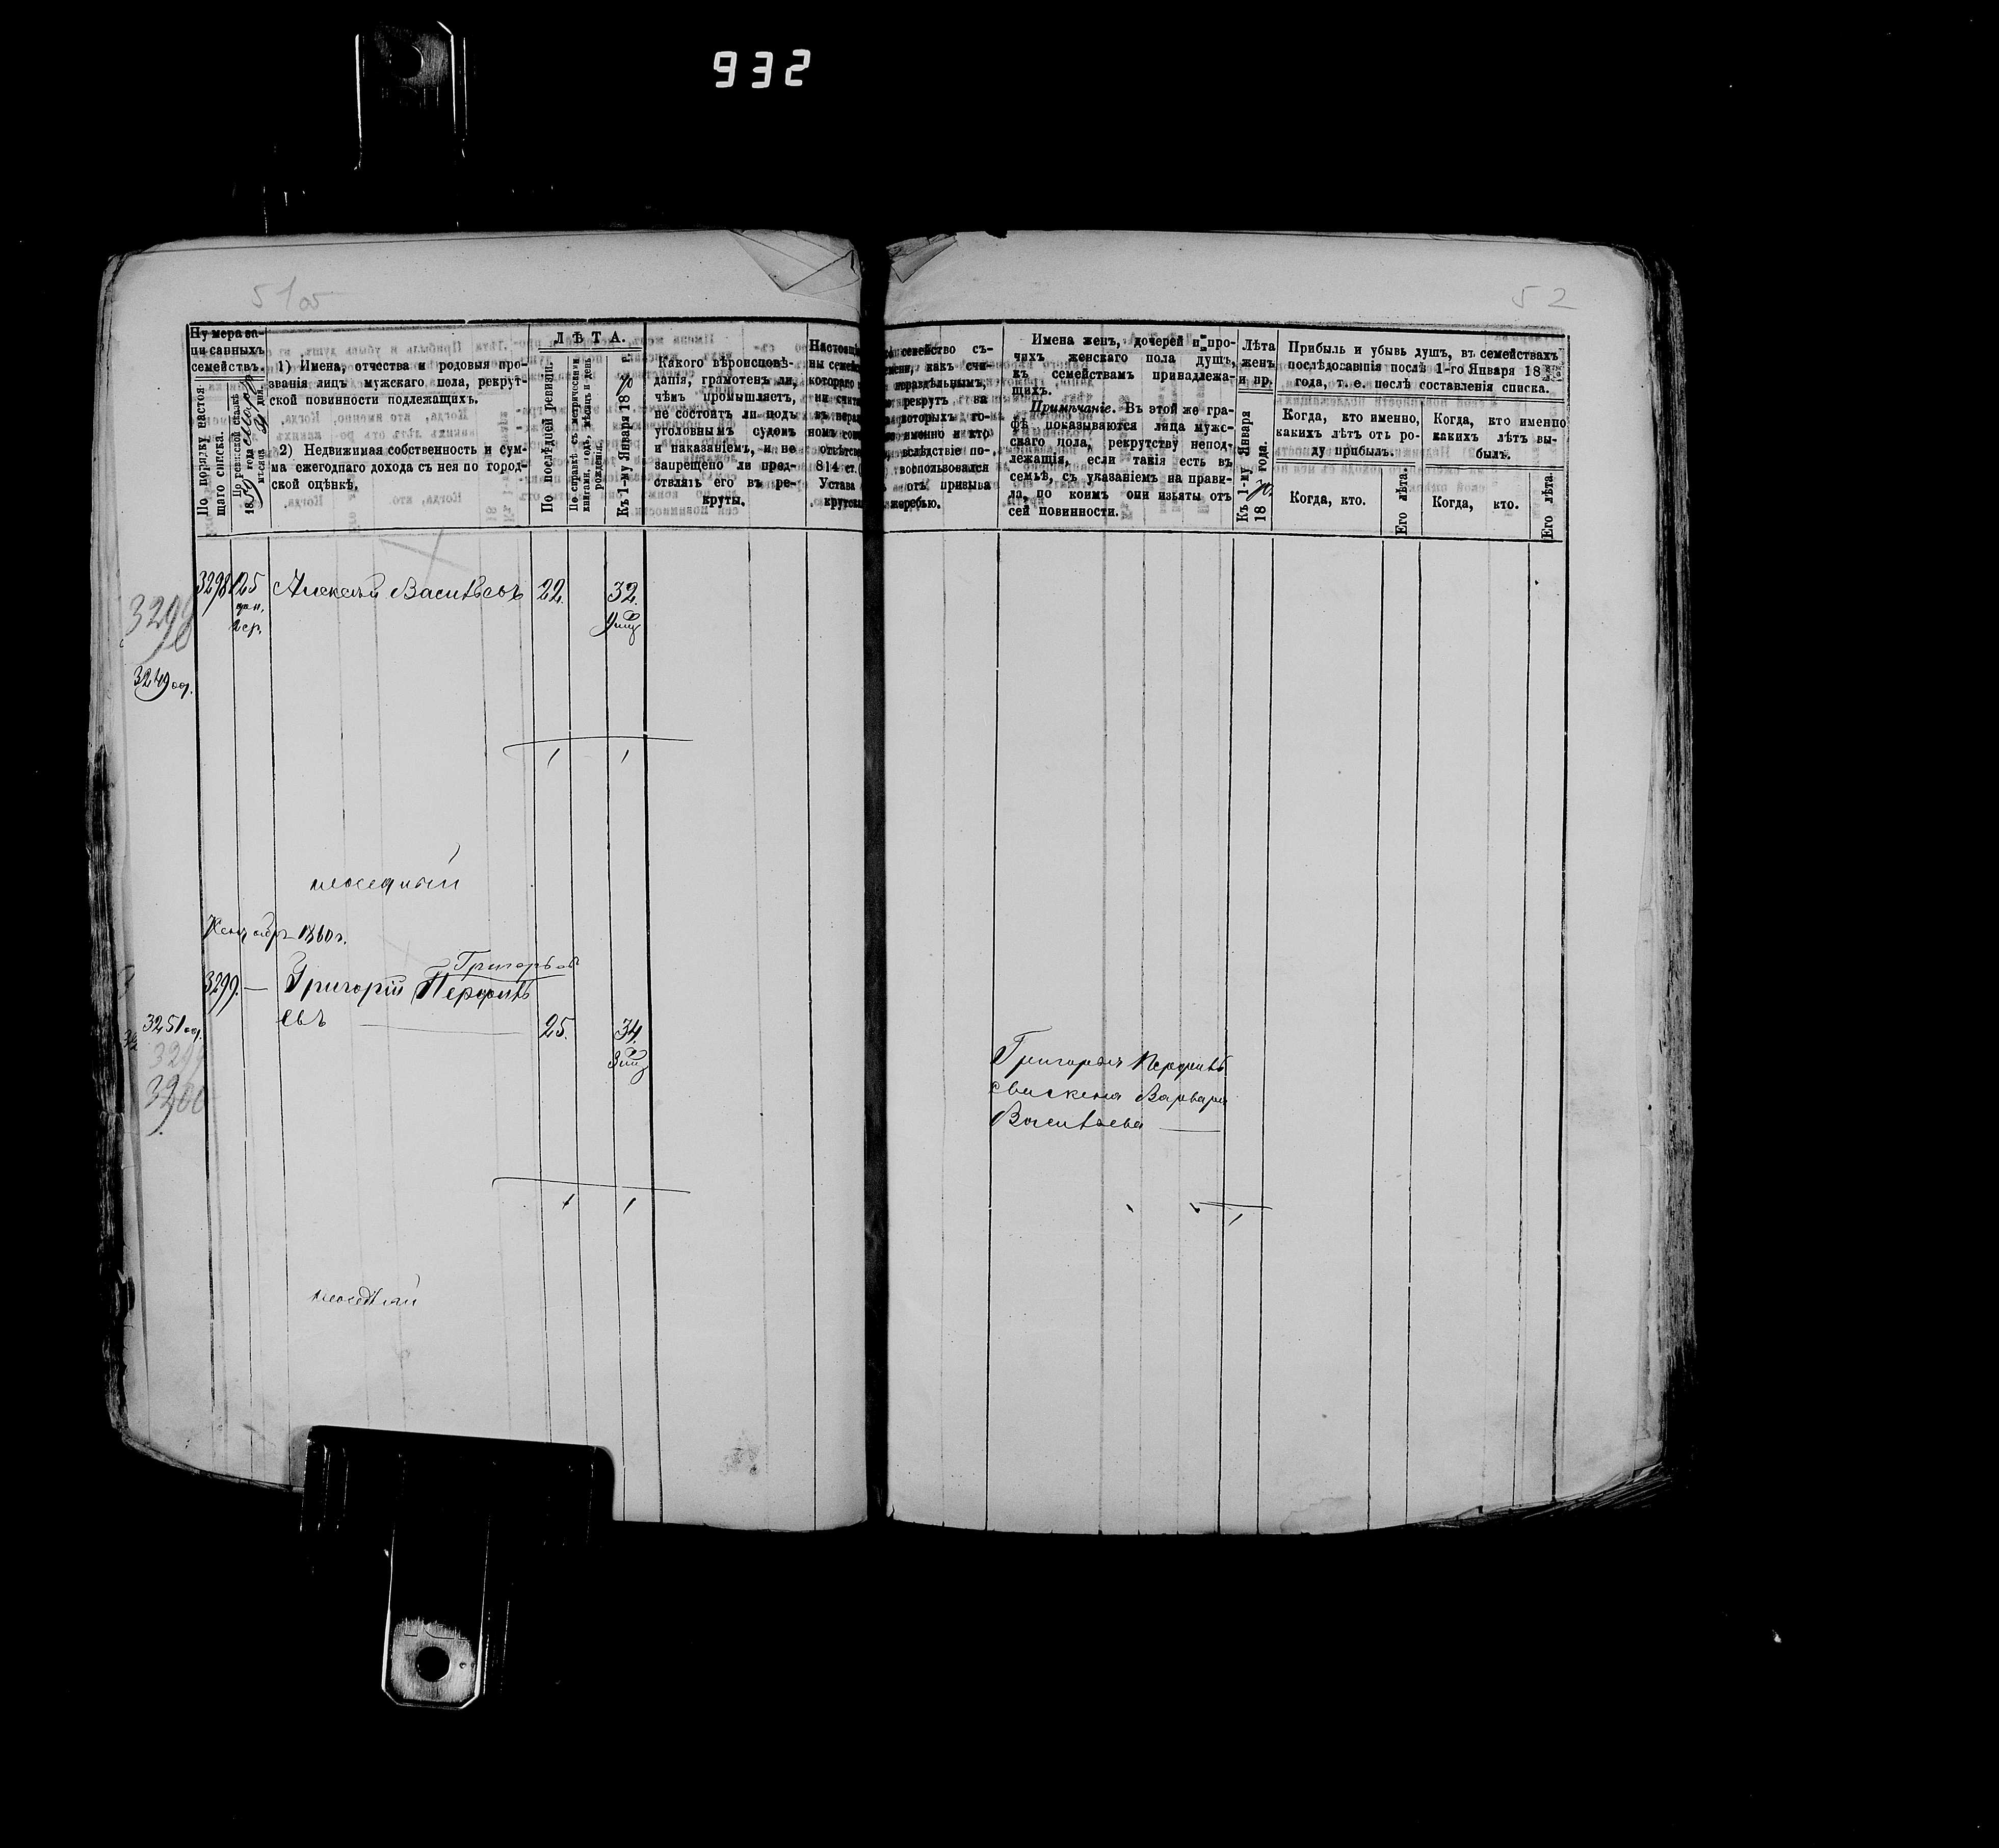 932
51об
52
Нумера за-
писанныхъ
семействъ.
По порядку настоя-
щаго списка.
По ревизской сказкѣ
18 59 года
мѣсяца дня.
1) Имена, отчества и родовыя про-
званія лицъ мужскаго пола, рекрут-
ской повинности подлежащихъ.
2) Недвижимая собственность и сум-
ма ежегоднаго дохода съ нея по город-
ской оцѣнкѣ,
ЛѢТА.
По послѣдней ревизіи.
По справкѣ съ метрическими
книгами, годъ, мѣсяцъ и день
рожденія.
Къ 1-му Января 1870 г.
Какого вѣроисповѣ-
данія, грамотенъ ли,
чѣмъ промышляетъ,
не состоитъ ли подъ
уголовнымъ судомъ
и наказаніемъ, и не
запрещено ли пред-
ставлять его въ ре-
круты.
Настоящ
ны семей
котораго
ни счита
въ нерав
номъ сос
отвѣтств
814 ст.
Устава
крутск
семейство съ-
мени, какъ счи-
нераздѣльнымъ,
рекрутъ за
которыхъ го-
именно и кто
вслѣдствіе по-
воспользовался
отъ призыва
жеребью.
Имена женъ, дочерей и про-
чихъ женскаго пола душъ,
къ семействамъ принадлежа-
щихъ.
Примѣчаніе. Въ этой же гра-
фѣ показываются лица мужс-
скаго пола, рекрутству непод-
лежащія, если такія есть въ
семьѣ, съ указаніемъ на прави-
ла, по коимъ они изъяты отъ
сей повинности.
Лѣта
женъ
и пр.
Къ 1-му Января
1870 года.
Прибыль и убывь душъ, въ семействахъ
послѣдовавшія послѣ 1-го Января 18
года, т. е. послѣ составленія списка.
Когда, кто именно,
какихъ лѣтъ отъ ро-
ду прибылъ.
Когда, кто именно
какихъ лѣтъ вы-
былъ.
Когда, кто.
Его лѣта.
Когда, кто.
Его лѣта.
3298 125 Алексѣй Васильевъ 22. 32.
3298
3249
1 1
неоседлый
1860 г.
Григорьевъ
3299. — Григорій Перфилъ
евъ — 25. 34.
3251
3299
3300
Григорья Перфилѣ
ева жена Варвара
Васильева —
1 1 1
неоседлый